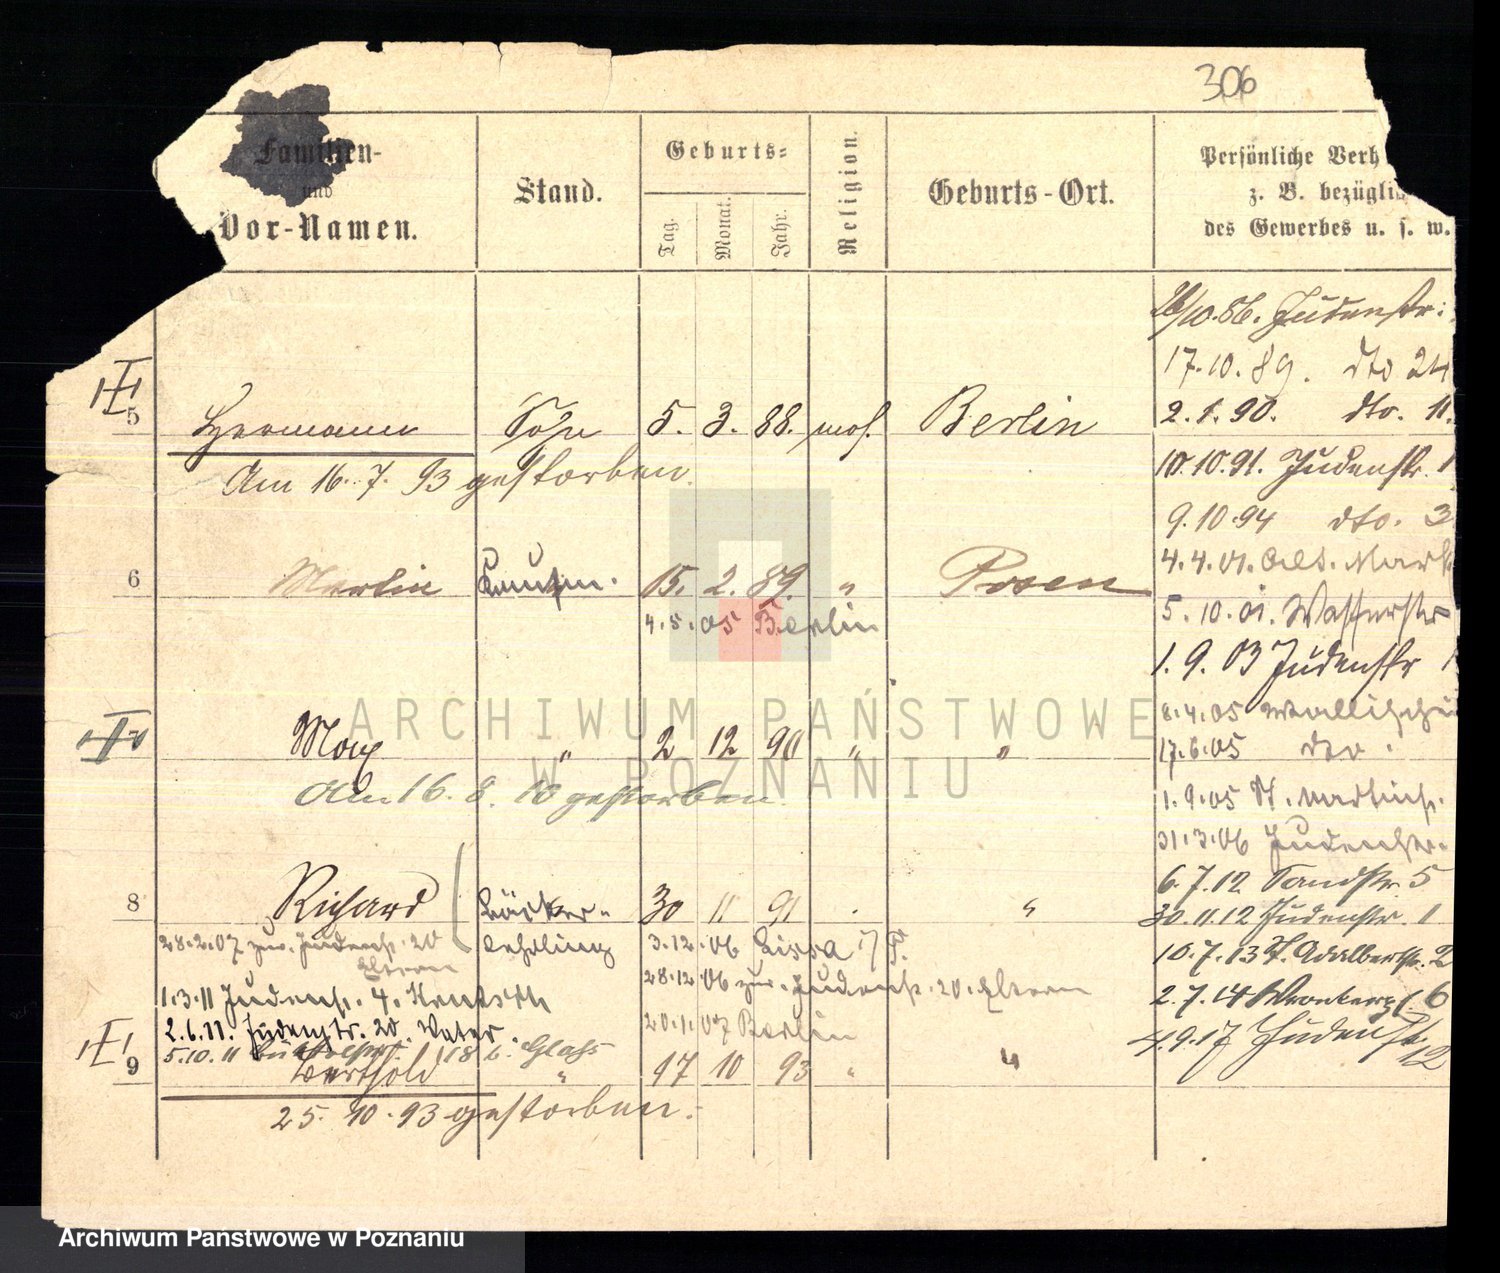 306
Familien-
und
Vor-Namen.
Stand.
Geburts-
Tag.
Monat.
Jahr.
Religion.
Geburts-Ort.
Persönliche Verh
z. B. bezüglic
des Gewerbes u. s. w.
5
Hermann Sohn 5. 3. 88. mos. Berlin
Am 16.7.93 gestorben.
6
Martin Kaufm. 15. 2. 89. " Posen
4.5.05 Berlin
7
Max " 2 12 90 " "
Am 16.8.10 gestorben.
8
Richard Bäcker- 30 11 91 "
lehrling
3.12.06 Lissa i/P.
28.2.07 zur. Judenstr. 20
Eltern
28.12.06 zur. Judenstr. 20. Eltern
1.3.11 Judenstr. 4.
20.1.07 Berlin
2.6.11. Judenstr. 20. Vater
5.10.11
9
Berthold " 17 10 93 " "
25.10.93 gestorben.
/10.86. Judenstr:
17.10.89. dto 24
2.1.90. dto. 11.
10.10.91. Judenstr. 1
9.10.94 dto. 3
4.4.01. Alt. Mark
5.10.01. Wasserstr
1.9.03 Judenstr 1
8.4.05 Wallischei
17.6.05 dto.
1.9.05 St. Martinstr.
31.3.06 Judenstr.
6.7.12 Sandstr. 5
30.11.12 Judenstr. 1
10.7.13 St. Adalbertstr. 2
2.7.14 Wronkerstr. 6
4.9.17 Judenstr
12
ARCHIWUM PAŃSTWOWE
W POZNANIU
Archiwum Państwowe w Poznaniu